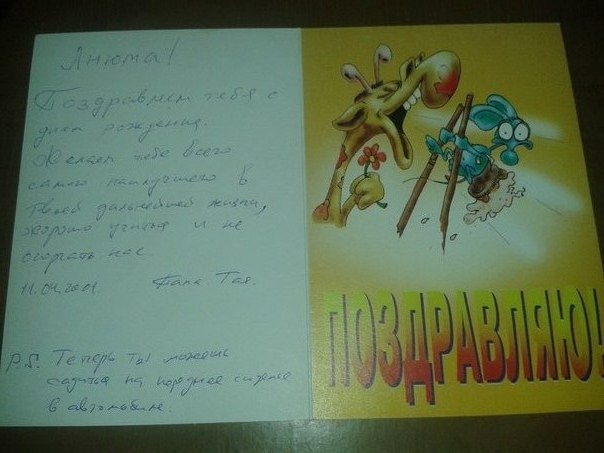 Анюта!
Поздравляем тебя с
днем рождения.
Желаем тебе всего
самого наилучшего в
твоей дальнейшей жизни,
хорошо учиться и не
огорчать нас.
11.04.2001 Папа Тая.
P.S. Теперь ты можешь
садиться на переднее сиденье
в автомобиле.
ПОЗДРАВЛЯЮ!